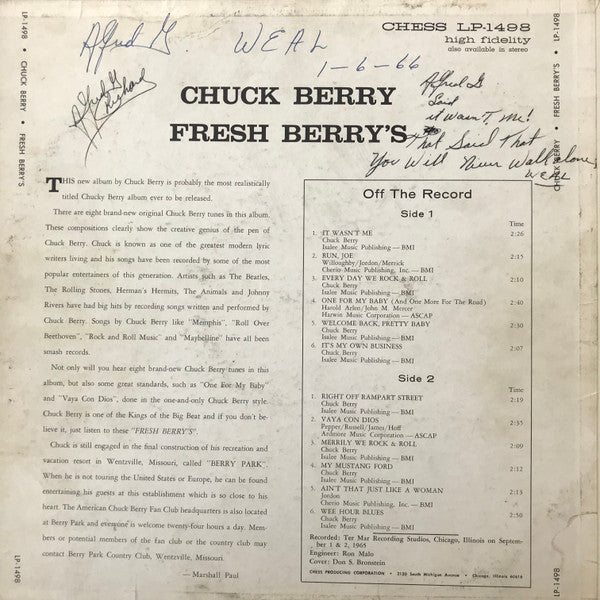 LP-1498 • CHUCK BERRY • FRESH BERRY'S
LP-1498
Alfred G. WEAL
1-6-66
Alfred G
Richard
CHESS LP-1498
high fidelity
also available in stereo
CHUCK BERRY
FRESH BERRY'S
Alfred G
Said
it wasn't me!
That Said That
You Will Never Walk alone,
WEAL
THIS new album by Chuck Berry is probably the most realistically
titled Chucky Berry album ever to be released.
There are eight brand-new original Chuck Berry tunes in this album.
These compositions clearly show the creative genius of the pen of
Chuck Berry. Chuck is known as one of the greatest modern lyric
writers living and his songs have been recorded by some of the most
popular entertainers of this generation. Artists such as The Beatles,
The Rolling Stones, Herman's Hermits, The Animals and Johnny
Rivers have had big hits by recording songs written and performed by
Chuck Berry. Songs by Chuck Berry like "Memphis", "Roll Over
Beethoven", "Rock and Roll Music" and "Maybelline" have all been
smash records.
Not only will you hear eight brand-new Chuck Berry tunes in this
album, but also some great standards, such as "One For My Baby"
and "Vaya Con Dios", done in the one-and-only Chuck Berry style.
Chuck Berry is one of the Kings of the Big Beat and if you don't be-
lieve it, just listen to these "FRESH BERRY'S".
Chuck is still engaged in the final construction of his recreation and
vacation resort in Wentzville, Missouri, called "BERRY PARK".
When he is not touring the United States or Europe, he can be found
entertaining his guests at this establishment which is so close to his
heart. The American Chuck Berry Fan Club headquarters is also located
at Berry Park and everyone is welcome twenty-four hours a day. Mem-
bers or potential members of the fan club or the country club may
contact Berry Park Country Club, Wentzville, Missouri.
— Marshall Paul
Off The Record
Side 1
Time
1. IT WASN'T ME 2:26
Chuck Berry
Isalee Music Publishing — BMI
2. RUN, JOE 2:15
Willoughby/Jordon/Merrick
Cherio-Music Publishing, Inc. — BMI
3. EVERY DAY WE ROCK & ROLL 2:10
Chuck Berry
Isalee Music Publishing — BMI
4. ONE FOR MY BABY (And One More For The Road) 2:40
Harold Arlen/John M. Mercer
Harwin Music Corporation — ASCAP
5. WELCOME BACK, PRETTY BABY 2:30
Chuck Berry
Isalee Music Publishing — BMI
6. IT'S MY OWN BUSINESS 2:07
Chuck Berry
Isalee Music Publishing — BMI
Side 2
Time
1. RIGHT OFF RAMPART STREET 2:19
Chuck Berry
Isalee Music Publishing — BMI
2. VAYA CON DIOS 2:35
Pepper/Russell/James/Hoff
Ardmore Music Corporation — ASCAP
3. MERRILY WE ROCK & ROLL 2:09
Chuck Berry
Isalee Music Publishing — BMI
4. MY MUSTANG FORD 2:12
Chuck Berry
Isalee Music Publishing — BMI
5. AIN'T THAT JUST LIKE A WOMAN 2:13
Jordon
Cherio Music Publishing, Inc. — BMI
6. WEE HOUR BLUES 2:50
Chuck Berry
Isalee Music Publishing — BMI
Recorded: Ter Mar Recording Studios, Chicago, Illinois on Septem-
ber 1 & 2, 1965
Engineer: Ron Malo
Cover: Don S. Bronstein
CHESS PRODUCING CORPORATION • 2120 South Michigan Avenue • Chicago, Illinois 60616
LP-1498 • FRESH BERRY'S • CHUCK BERRY
LP-1498